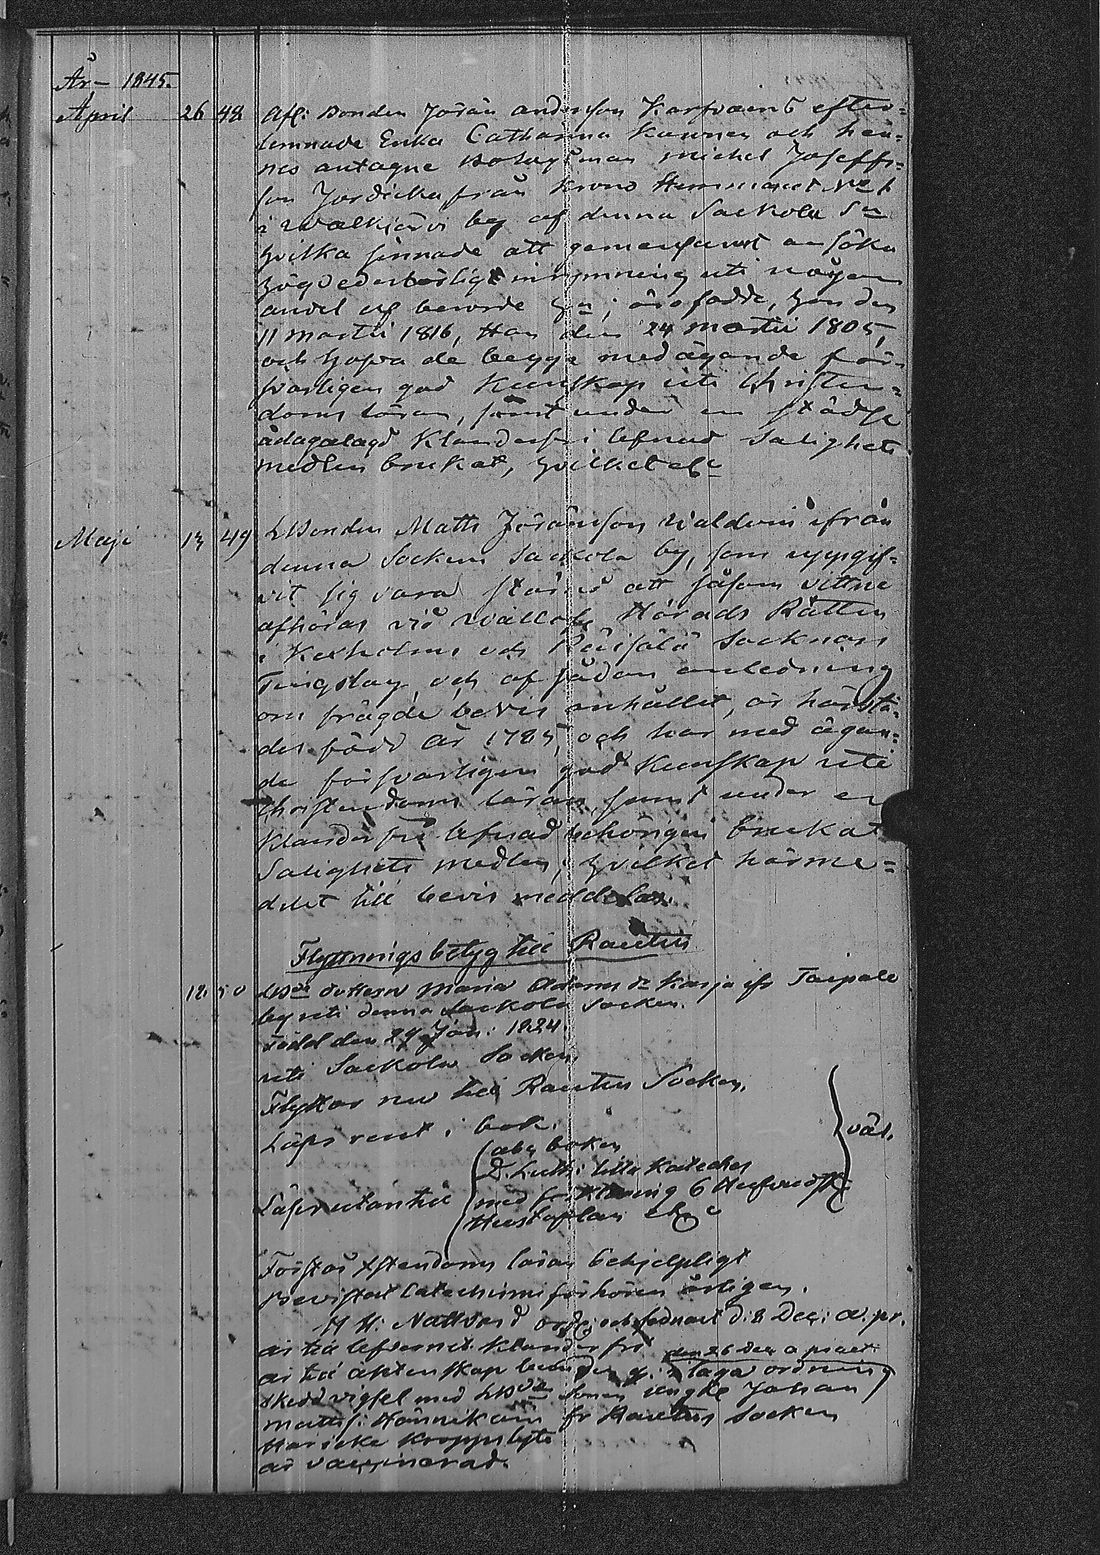 År 1845.
April 26 48 Afl: Bonden Jöran Anderson Karfvains efter=
lemnade Enka Catharina och hen=
nes antagne Bolagsman Michel Joseffs=
son från Krono Hemmanet No 1
i Walkjärvi by af denna Sackola Sn
hvilka sinnade att gemensamt ansöka
inrymning uti någon
andel af berörde Hn, äro födde, hon den
11 Martii 1816, Han den 24 Martii 1805,
och hafva de begge med ägande för=
svarligen god Kunskap uti Christen=
doms läran, samt under en städse
ådagalagd Klanderfri lefnad Salighets
medlen brukat, hvilket etc
Maji 13 49 Bonden Matts Jöransson Valdvin ifrån
denna Socken Sackola by, som uppgif=
vit sig vara stämd att såsom vittne
afhöras vid Wällofl. Härads Rätten
i Kexholms och Räisälä Socknars
Tingslag, och af sådan anledning
om frägde bevis anhållit, är härstä=
des född År 1785, och har med ägan=
de försvarligen god Kunskap uti
Christendoms läran, samt under en
Klanderfri lefnad behörigen brukat
Salighets medlen; hvilket härme=
delst till bevis meddelas.
Flyttningsbetyg till Rautus
12 50 dottern Maria Adams dr Karja ifr Taipale
by uti denna Sackola Socken.
Född den 24 Jan: 1824.
uti Sackola Socken
Flyttar nu till Rautus Socken,
Läser rent i bok.
abc boken
D. Luth: lilla Kateches
Läser utantill med förklaring
Hustaflan etc
väl.
Förstår Xstendoms läran behjelpligt
Bevistat Catechismiförhören årligen.
H H: Nattvard d: 8 Dec: a. pr.
är till lefvernet Klanderfri
den 26 Dec a præt:
är till äktenskap laga ordning
skedd vigsel med sonen unge Johan
Matts: Hännikäin fr Rautus Socken
Har icke Kroppslyte
är vaccinerad.